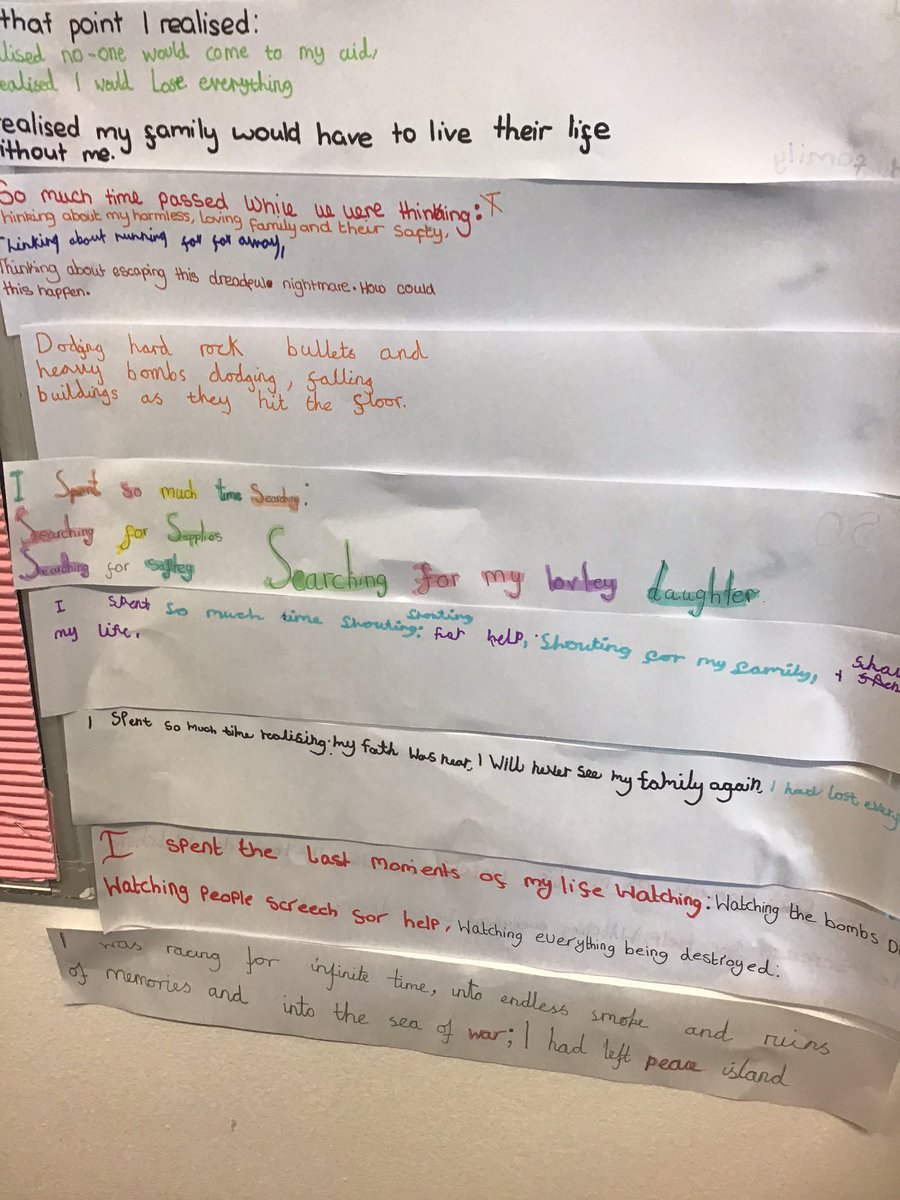 that point I realised:
lised no-one would come to my aid,
ealised I would Lose everything
ealised my family would have to live their life
ithout me.
family
So much time passed while we were thinking:
hinking about my harmless, loving family and their safty,
Thinking about running far far away,
Thinking about escaping this dreadful nightmare. How could
this happen.
Dodging hard rock bullets and
heavy bombs dodging, falling
buildings as they hit the floor.
I Spent so much time Searching:
Searching for Sapplies
Searching for saftey Searching for my lovley daughter.
SO
I spent so much time shouting: Shouting for help, Shouting for my family, + shou
my life.
I spent so much time realising: my fath was near, I will never see my family again, I had lost every
I spent the last moments of my life watching: Watching the bombs D
Watching people screech for help, Watching everything being destroyed.
I was racing for infinite time, into endless smoke and ruins
of memories and into the sea of war; I had left peace island